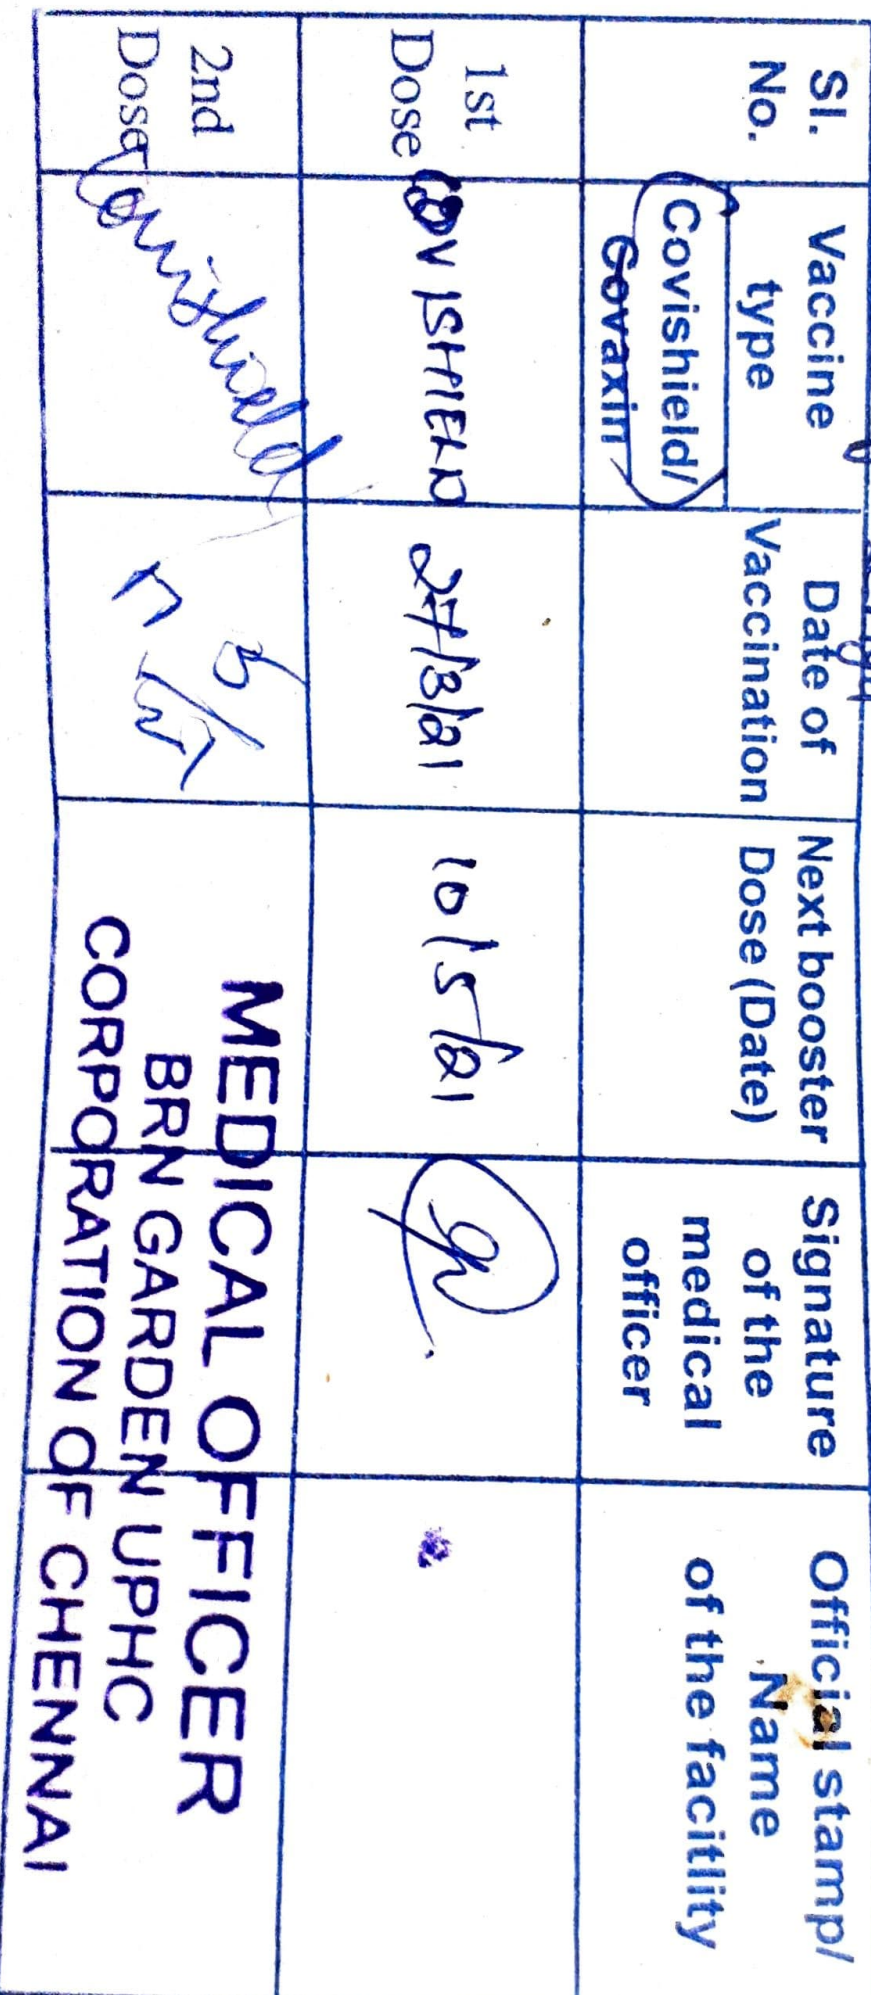 Sl.
No.
Vaccine
type
Covishield/
Covaxin
Date of
Vaccination
Next booster
Dose (Date)
Signature
of the
medical
officer
Official stamp/
Name
of the facitility
1st
Dose
COVISHIELD
27/3/21
10/5/21
2nd
Dose
Covishield
MEDICAL OFFICER
BRN GARDEN UPHC
CORPORATION OF CHENNAI